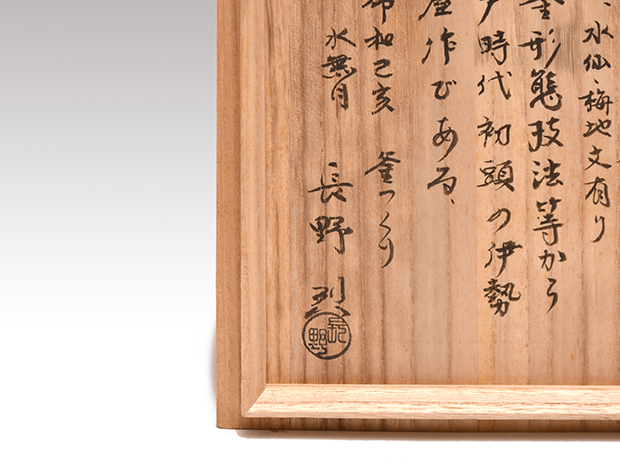 、水仙、梅地文有り
釜形態技法等から
戸時代初頭の伊勢
座作である、
令和己亥
水無月
釜つくり
長野 烈
長野